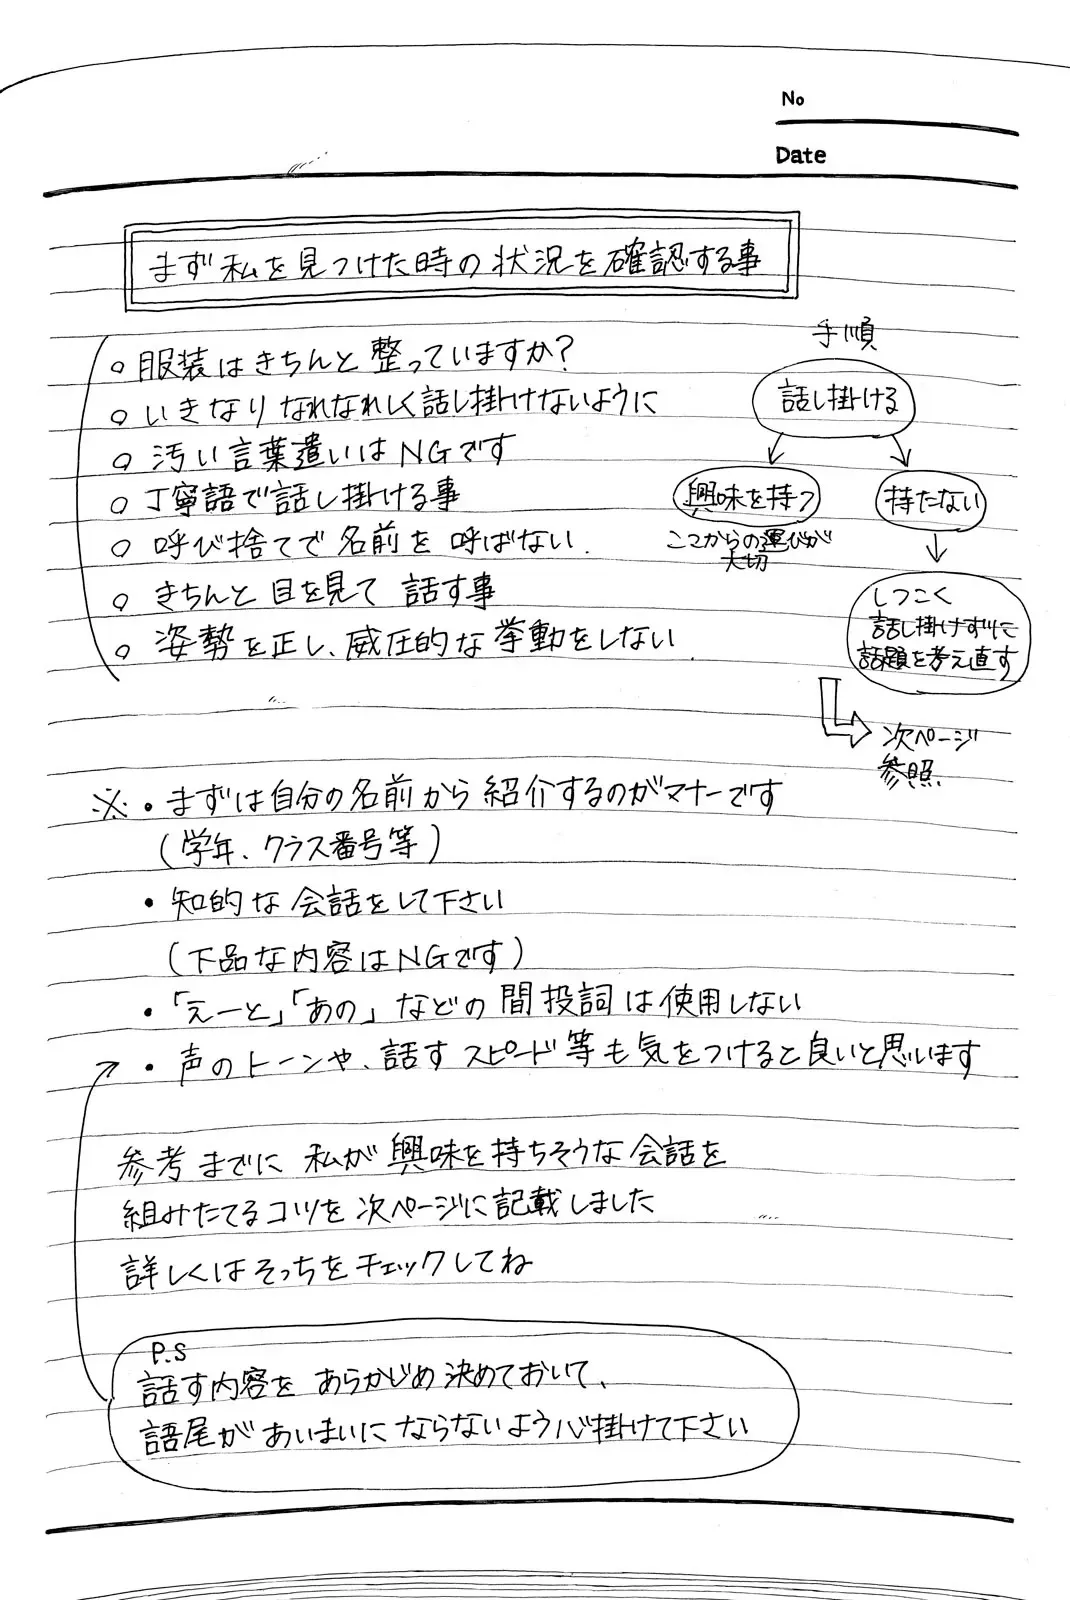 No
Date
まず私を見つけた時の状況を確認する事
。服装はきちんと整っていますか？
。いきなりなれなれしく話し掛けないように
。汚い言葉遣いはNGです
。丁寧語で話し掛ける事
。呼び捨てで名前を呼ばない.
。きちんと目を見て話す事
。姿勢を正し、威圧的な挙動をしない.
手順
話し掛ける
興味を持つ
ここからの運びが
大切
持たない
しつこく
話し掛けずに
話題を考え直す
次ページ
参照.
※・まずは自分の名前から紹介するのがマナーです
(学年、クラス番号等)
・知的な会話をして下さい
(下品な内容はNGです)
・「えーと」「あの」などの間投詞は使用しない
・声のトーンや、話すスピード等も気をつけると良いと思います
参考までに私が興味を持ちそうな会話を
組みたてるコツを次ページに記載しました
詳しくはそっちをチェックしてね
P.S
話す内容をあらかじめ決めておいて、
語尾があいまいにならないよう心掛けて下さい